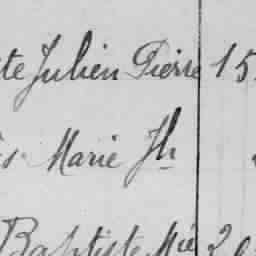 te Julien Pierre 15
s. Marie Jh
Baptiste Mie 20